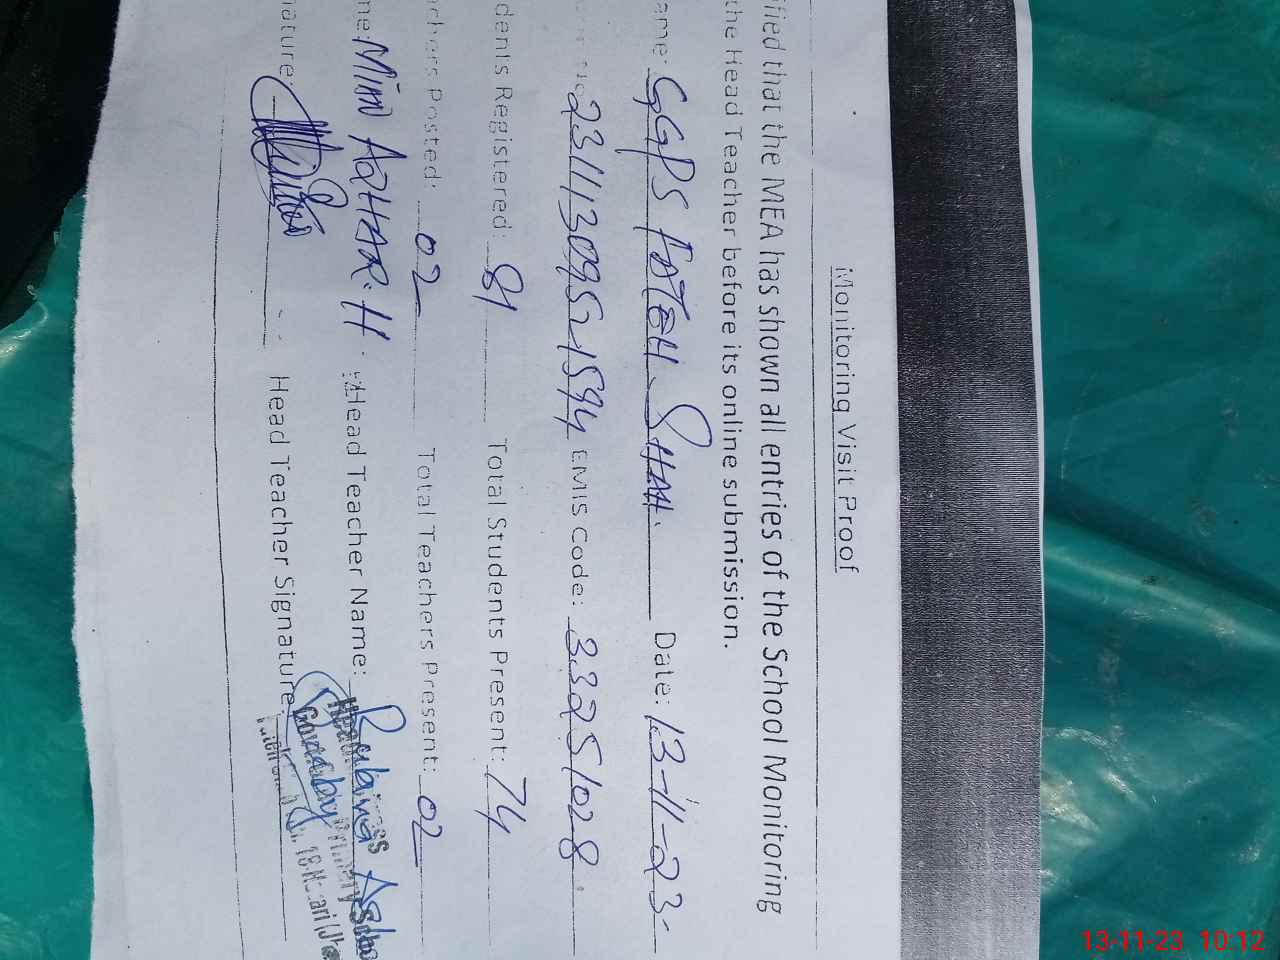 Monitoring Visit Proof
ified that the MEA has shown all entries of the School Monitoring
the Head Teacher before its online submission.
ame: GGPS FATEH SHAH. Date: 13-11-23
23111309521594 EMIS Code: 33251028
dents Registered: 81 Total Students Present: 74
chers Posted: 02 Total Teachers Present: 02
me: Mim AZHAR H. Head Teacher Name: Rubina
nature: Head Teacher Signature:
13-11-23 10:12